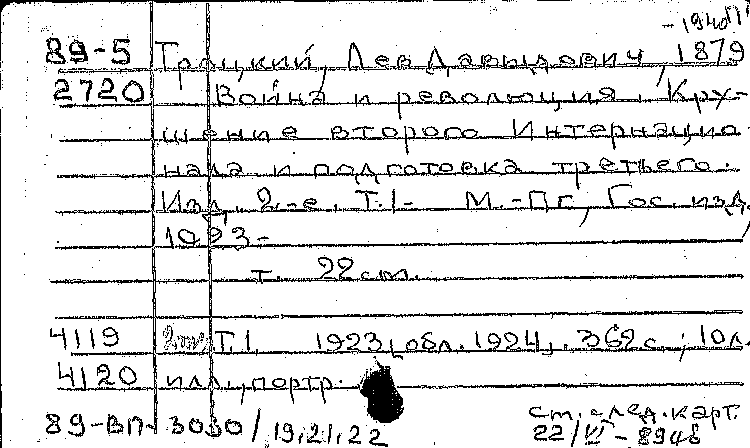 - 1940
89-5 Троцкий, Лев Давыдович, 1879
2720 Война и революция. Кру-
шение второго Интернацио
нала и подготовка третьего.
Изд. 2-е. Т.1- М.-Пг., Гос. изд.,
1923-
т. 22 cm.
4119 Т.1. 1923, [обл. 1924]. 369 с.; 10 л.
4120 илл., портр.
89-ВП-3030/19,21,22 см. след. карт.
22/VI - 8948